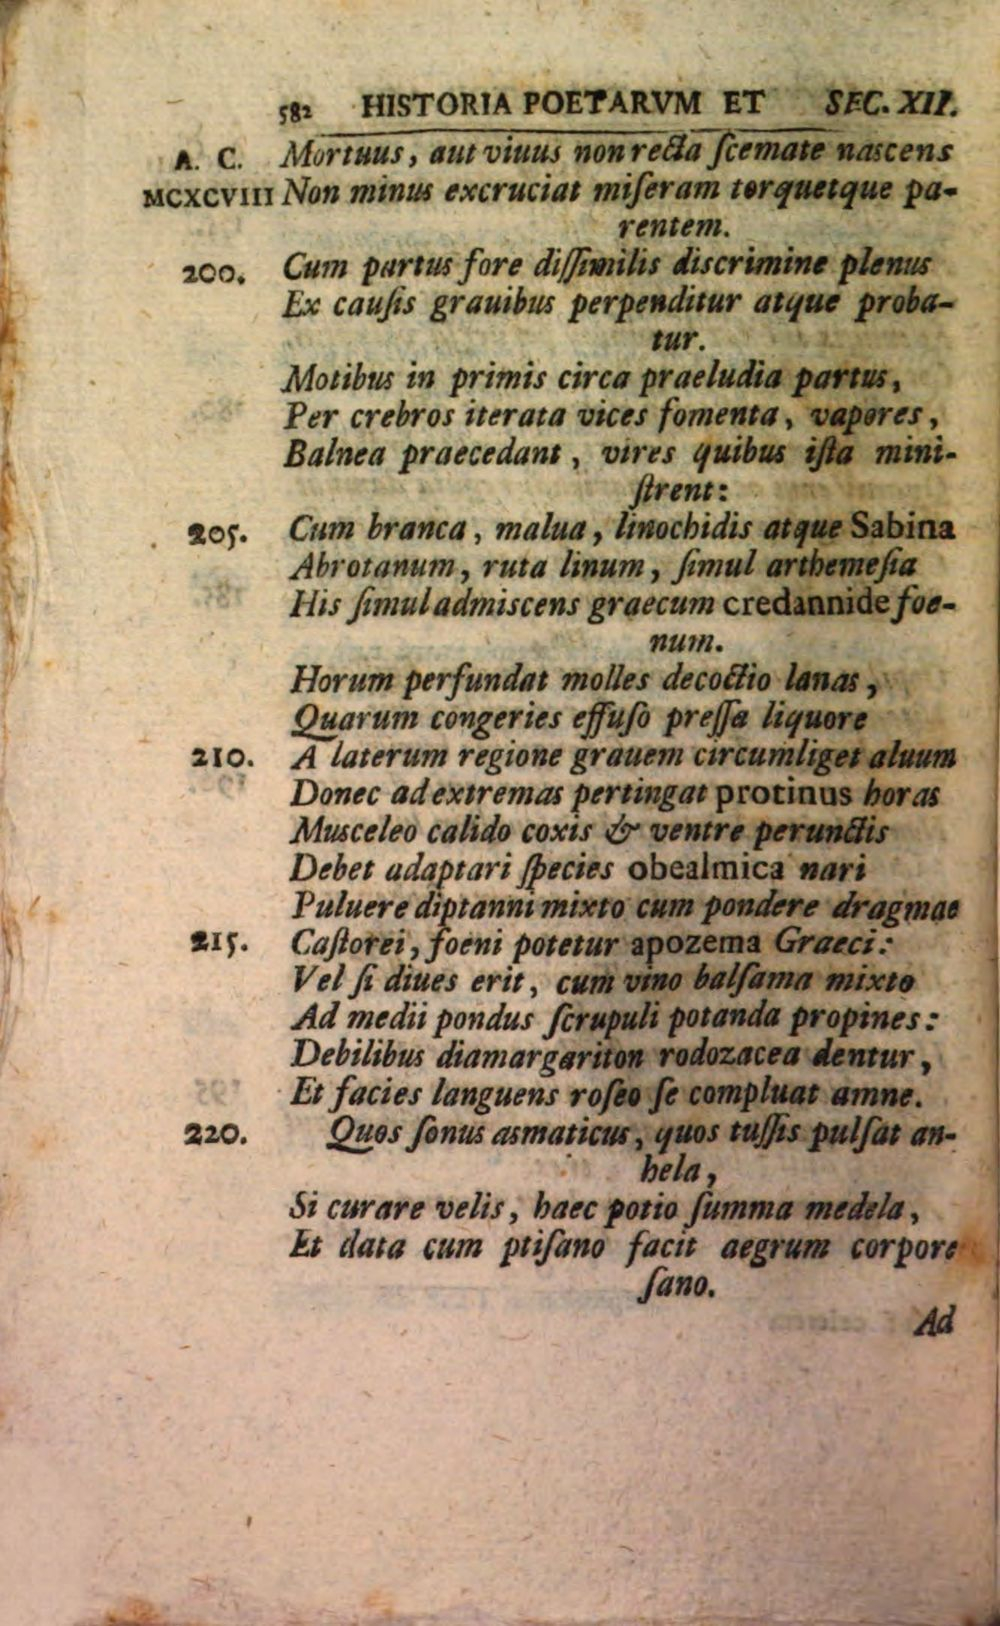 582 HISTORIA POETARVM ET SEC. XII.
A. C. Mortuus, aut viuus non recta ſcemate nascens
MCXCVIII Non minus excruciat miſeram torquetque pa-
rentem.
200. Cum partus fore diſſimilis discrimine plenus
Ex cauſis grauibus perpenditur atque proba-
tur.
Motibus in primis circa praeludia partus,
Per crebros iterata vices fomenta, vapores,
Balnea praecedant, vires quibus iſta mini-
ſtrent:
205. Cum branca, malua, linochidis atque Sabina
Abrotanum, ruta linum, ſimul arthemeſia
His ſimul admiscens graecum credannide foe-
num.
Horum perfundat molles decoctio lanas,
Quarum congeries effuſo preſſa liquore
210. A laterum regione grauem circumliget aluum
Donec ad extremas pertingat protinus horas
Musceleo calido coxis & ventre perunctis
Debet adaptari ſpecies obealmica nari
Puluere diptanni mixto cum pondere dragmae
215. Caſtorei, foeni potetur apozema Graeci:
Vel ſi diues erit, cum vino balſama mixto
Ad medii pondus ſcrupuli potanda propines:
Debilibus diamargariton rodozacea dentur,
Et facies languens roſeo ſe compluat amne.
220. Quos ſonus asmaticus, quos tuſſis pulſat an-
hela,
Si curare velis, haec potio ſumma medela,
Et data cum ptiſano facit aegrum corpore
ſano.
Ad